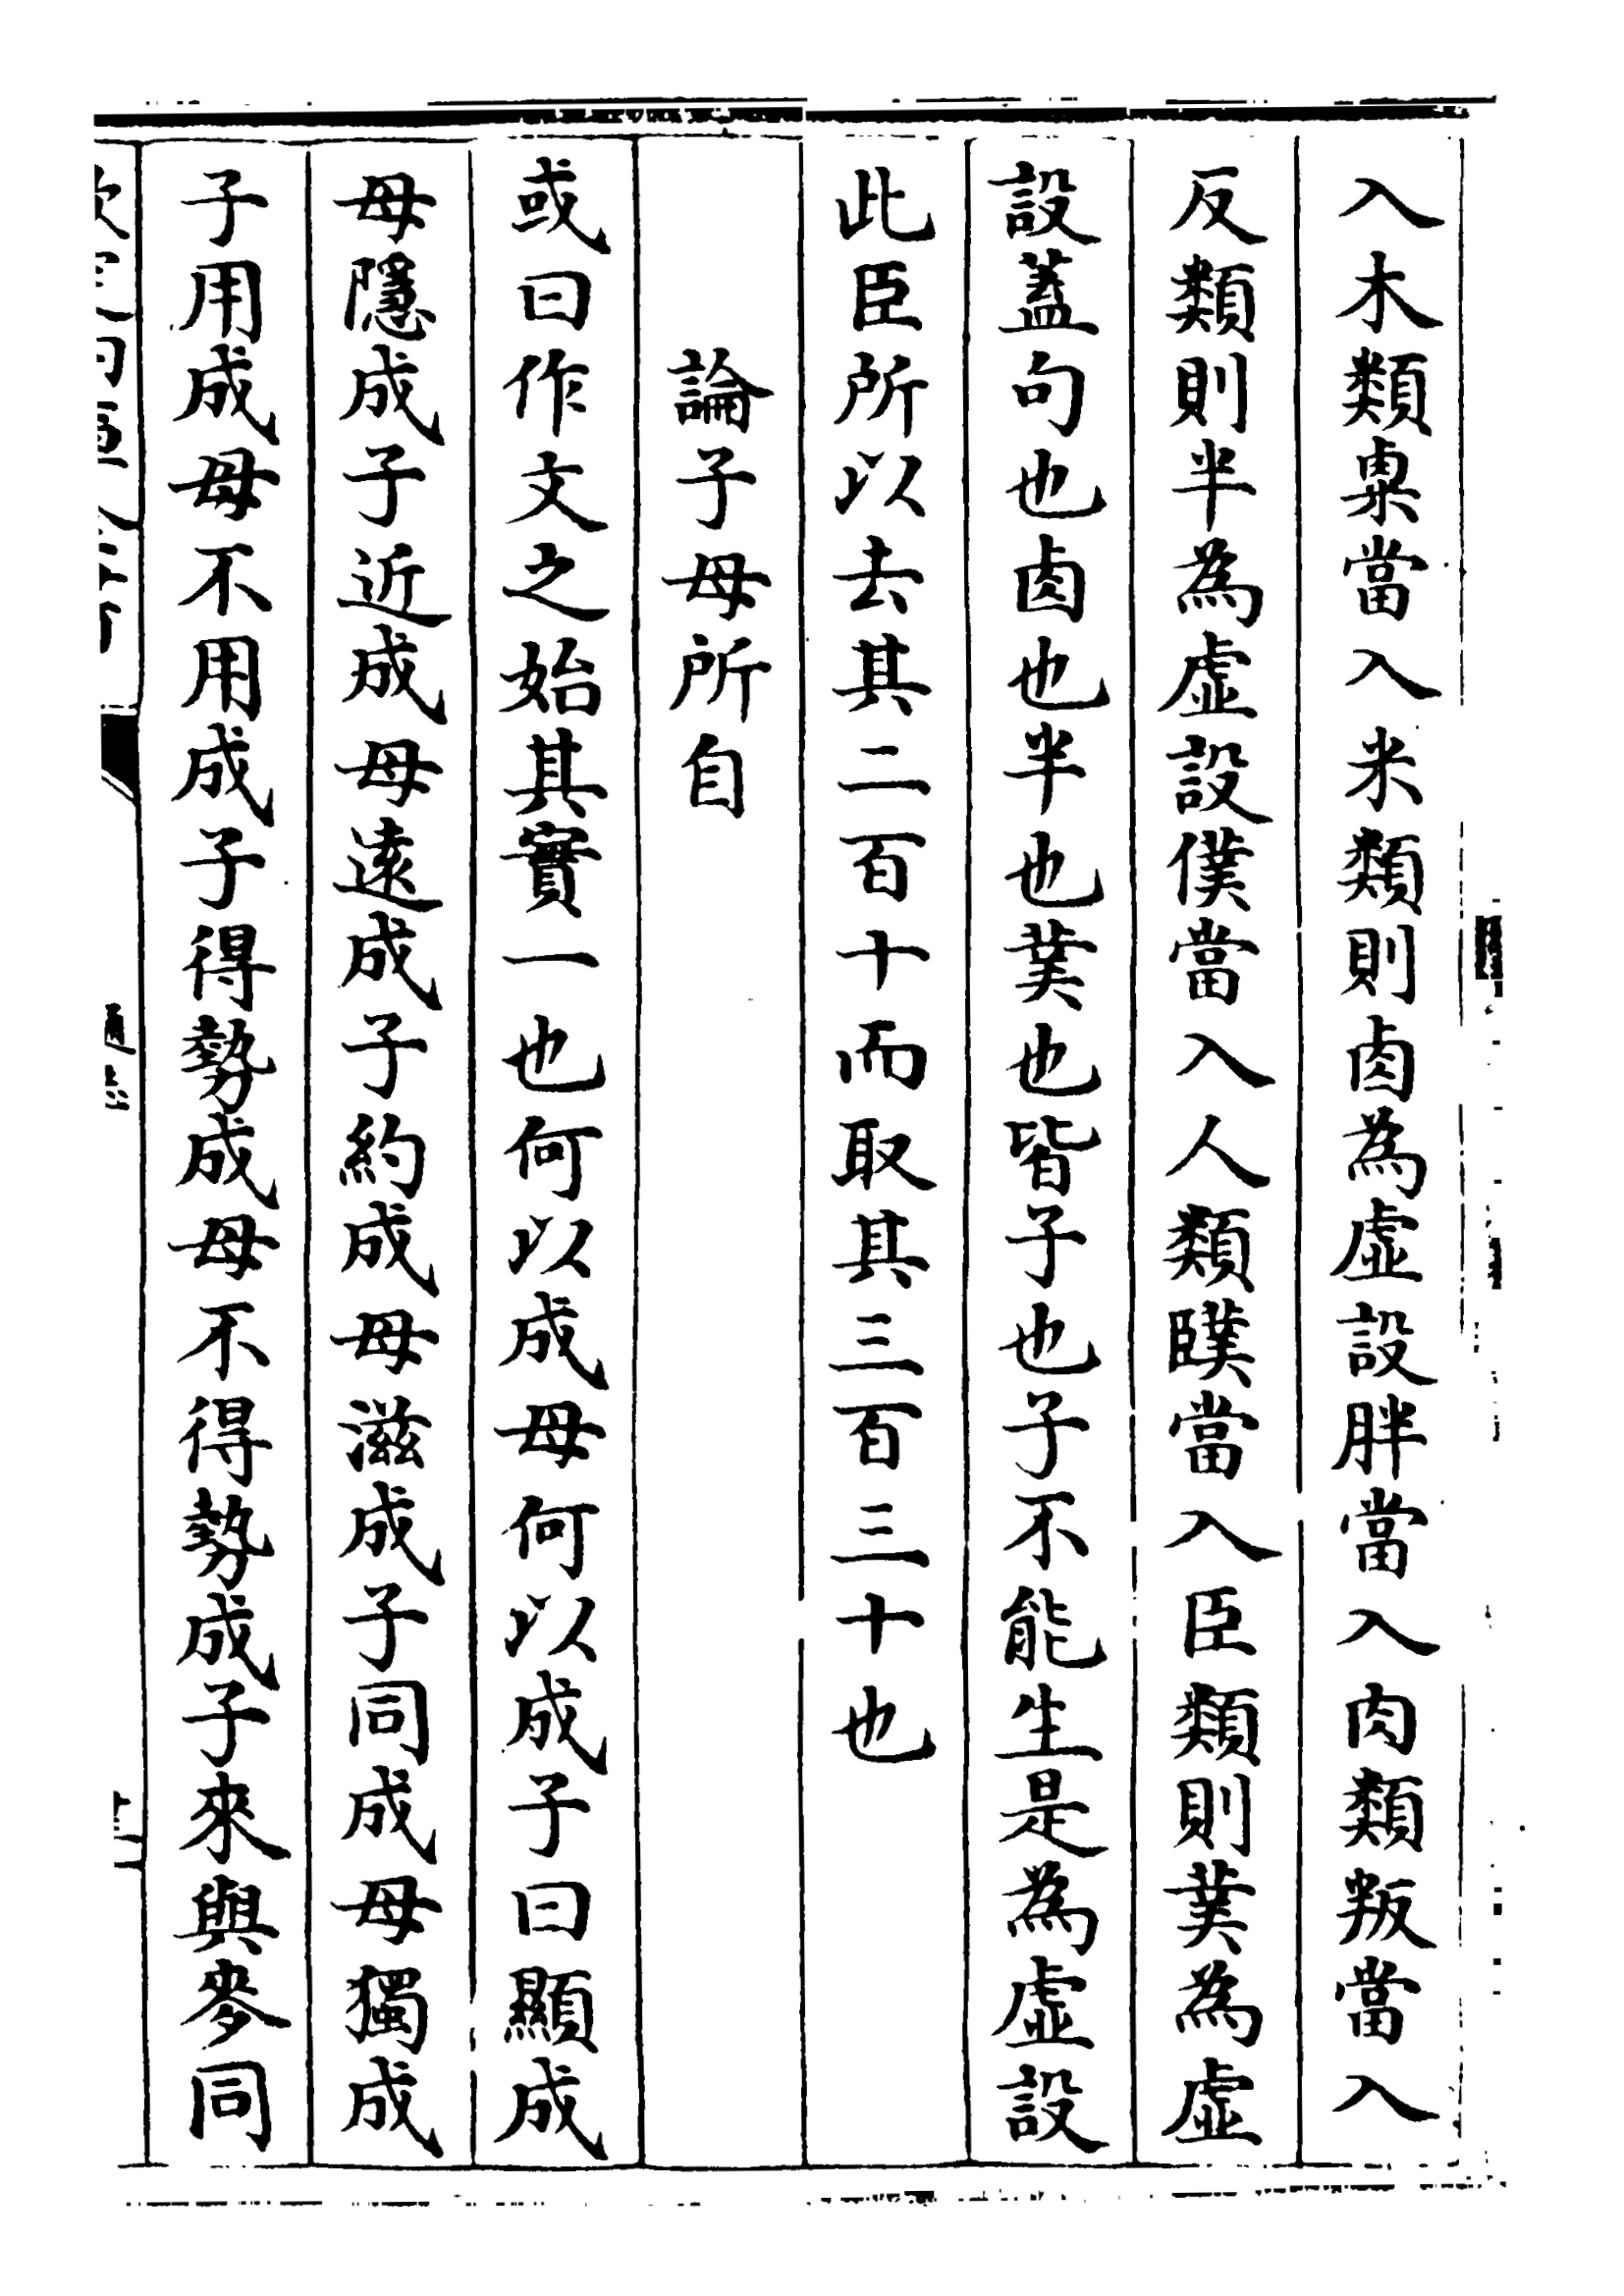 入木類㮚當入米類則卤為虛設胖當入肉類叛當入
反類則半為虛設僕當入人類䑑當入臣類則菐為虛
設蓋句也卤也半也菐也皆子也子不能生是為虛設
此臣所以去其二百十而取其三百三十也
論子母所自
或曰作文之始其實一也何以成母何以成子曰顯成
母隱成子近成母遠成子約成母滋成子同成母獨成
子用成母不用成子得勢成母不得勢成子來與麥同